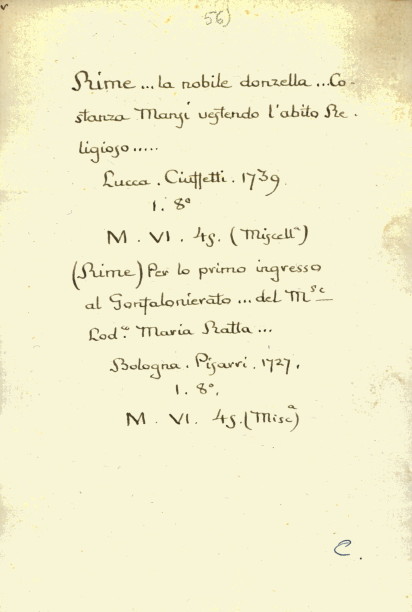 56)
Rime ... la nobile donzella ... Co-
stanza Mansi vestendo l'abito Re-
ligioso .....
Lucca. Ciuffetti. 1739
1. 8°
M. VI. 45. (Miscellª)
(Rime) Per lo primo ingresso
al Gonfalonierato ... del Mˢᶜ
Lod.º Maria Ratta ...
Bologna. Pisarri. 1727.
1. 8°.
M. VI. 45. (Miscª)
C.